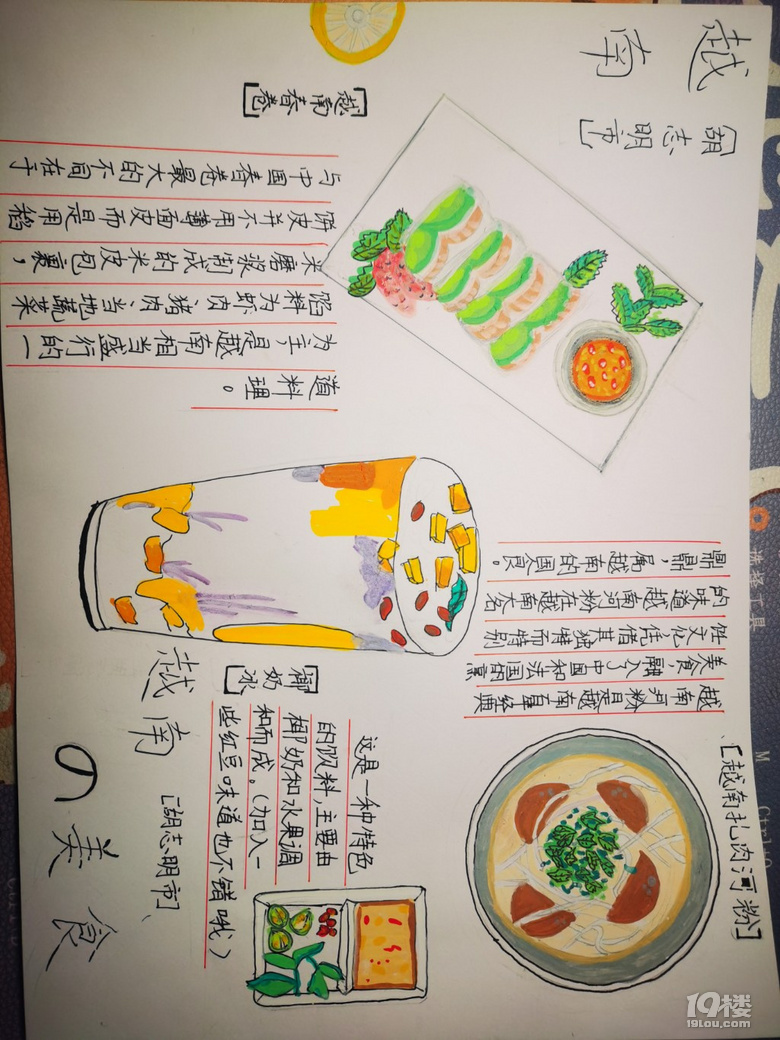 越南
[胡志明市]
[越南春卷]
与中国春卷最大的不同在于
饼皮并不用薄面皮而是用稻
米磨浆制成的米皮包裹，
馅料为虾肉、猪肉、当地蔬菜
为主，是越南相当盛行的一
道料理。
[越南扎肉河粉]
越南河粉是越南百年经典
美食，融入了中国和法国的烹
饪文化，凭借其独特而特别
的味道越南河粉在越南大名
鼎鼎，属越南的国食。
[椰奶冰]
这是一种特色
的饮料，主要由
椰奶和水果调
和而成。(加入一
些红豆味道也不错哦)
越南の美食
[胡志明市]
19楼
19lou.com